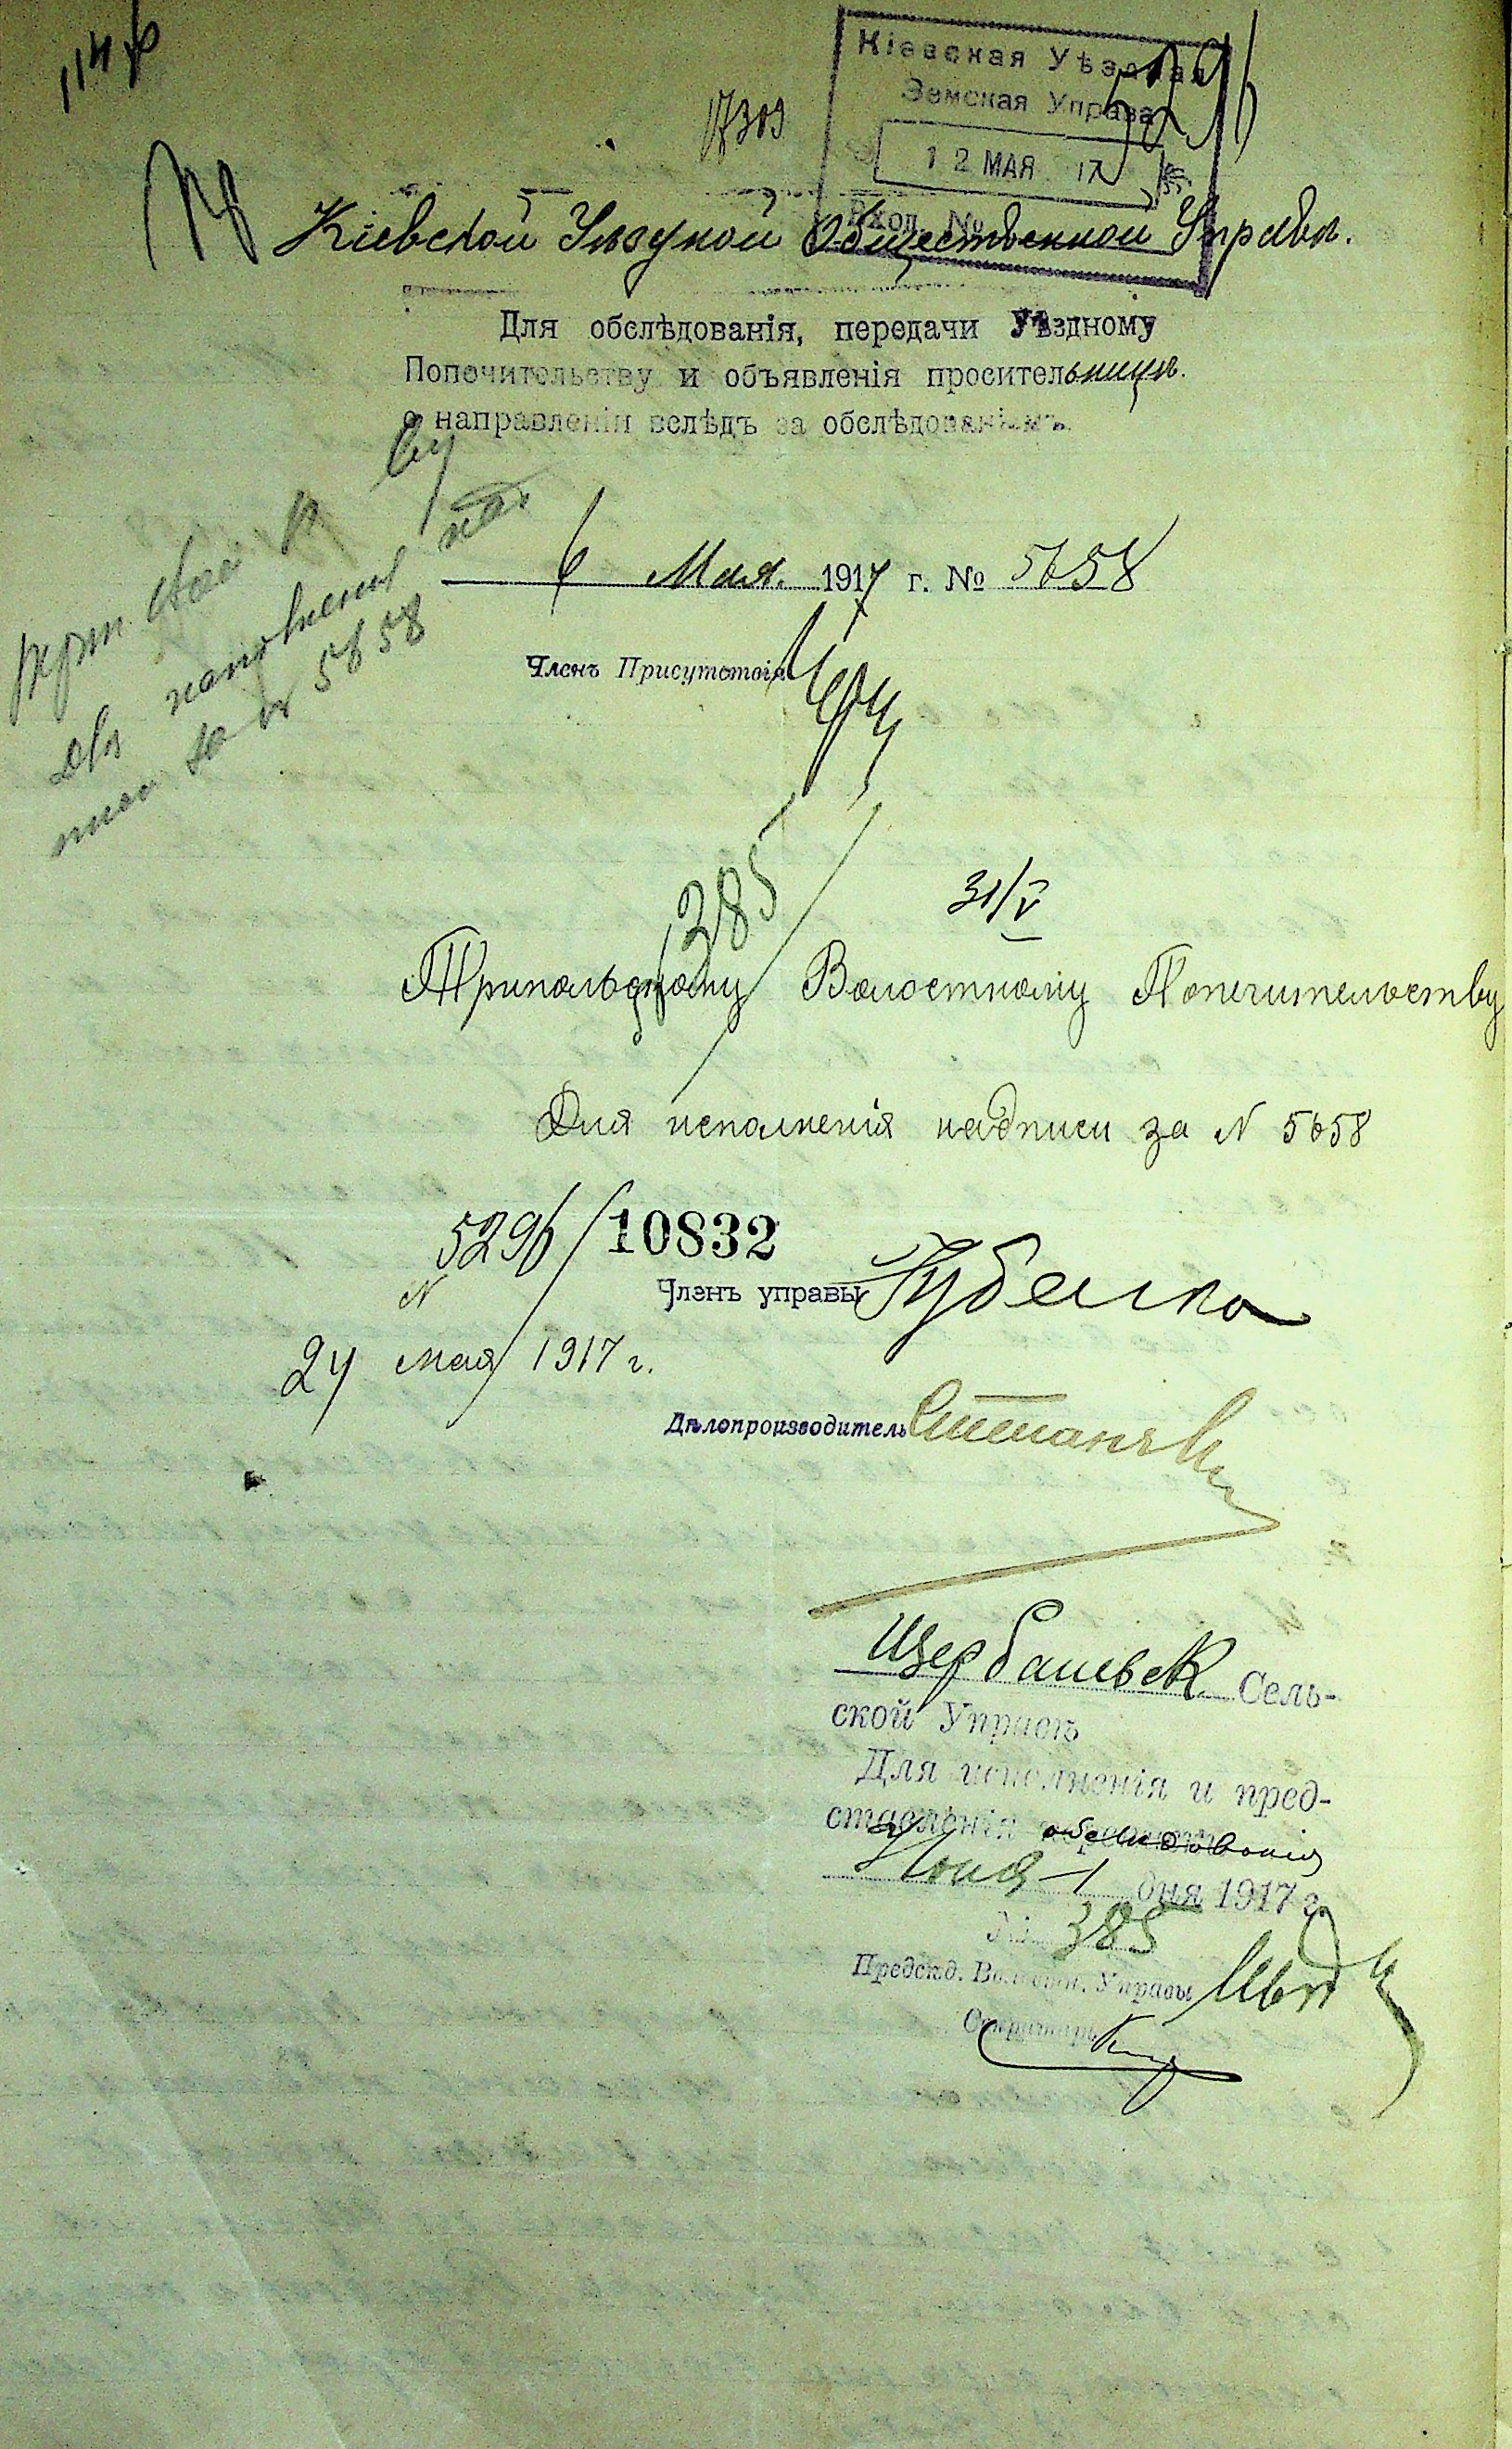 Кіевская Уѣздная
Земская Управа
5296
17303
12 МАЯ 17
Вход. №
Кіевской Уѣздной Общественной Управѣ.
Для обслѣдованія, передачи Уѣздному
Попечительству и объявленія просительницѣ
о направленіи вслѣдъ за обслѣдованіемъ.
6 Мая 1917 г. № 5658
Членъ Присутствія
за № 5658
385
31/V
Трипольскому Волостному Попечительству
Для исполненія надписи за N 5658
5296/10832
N
Членъ управы
24 мая 1917 г.
Дѣлопроизводитель
Щербаневск. Сель-
ской Управѣ
Для исполненія и пред-
ставленія обслѣдованія
Іюня 1 дня 1917 г.
№ 385
Предсѣд. Волостн. Управы
Секретарь